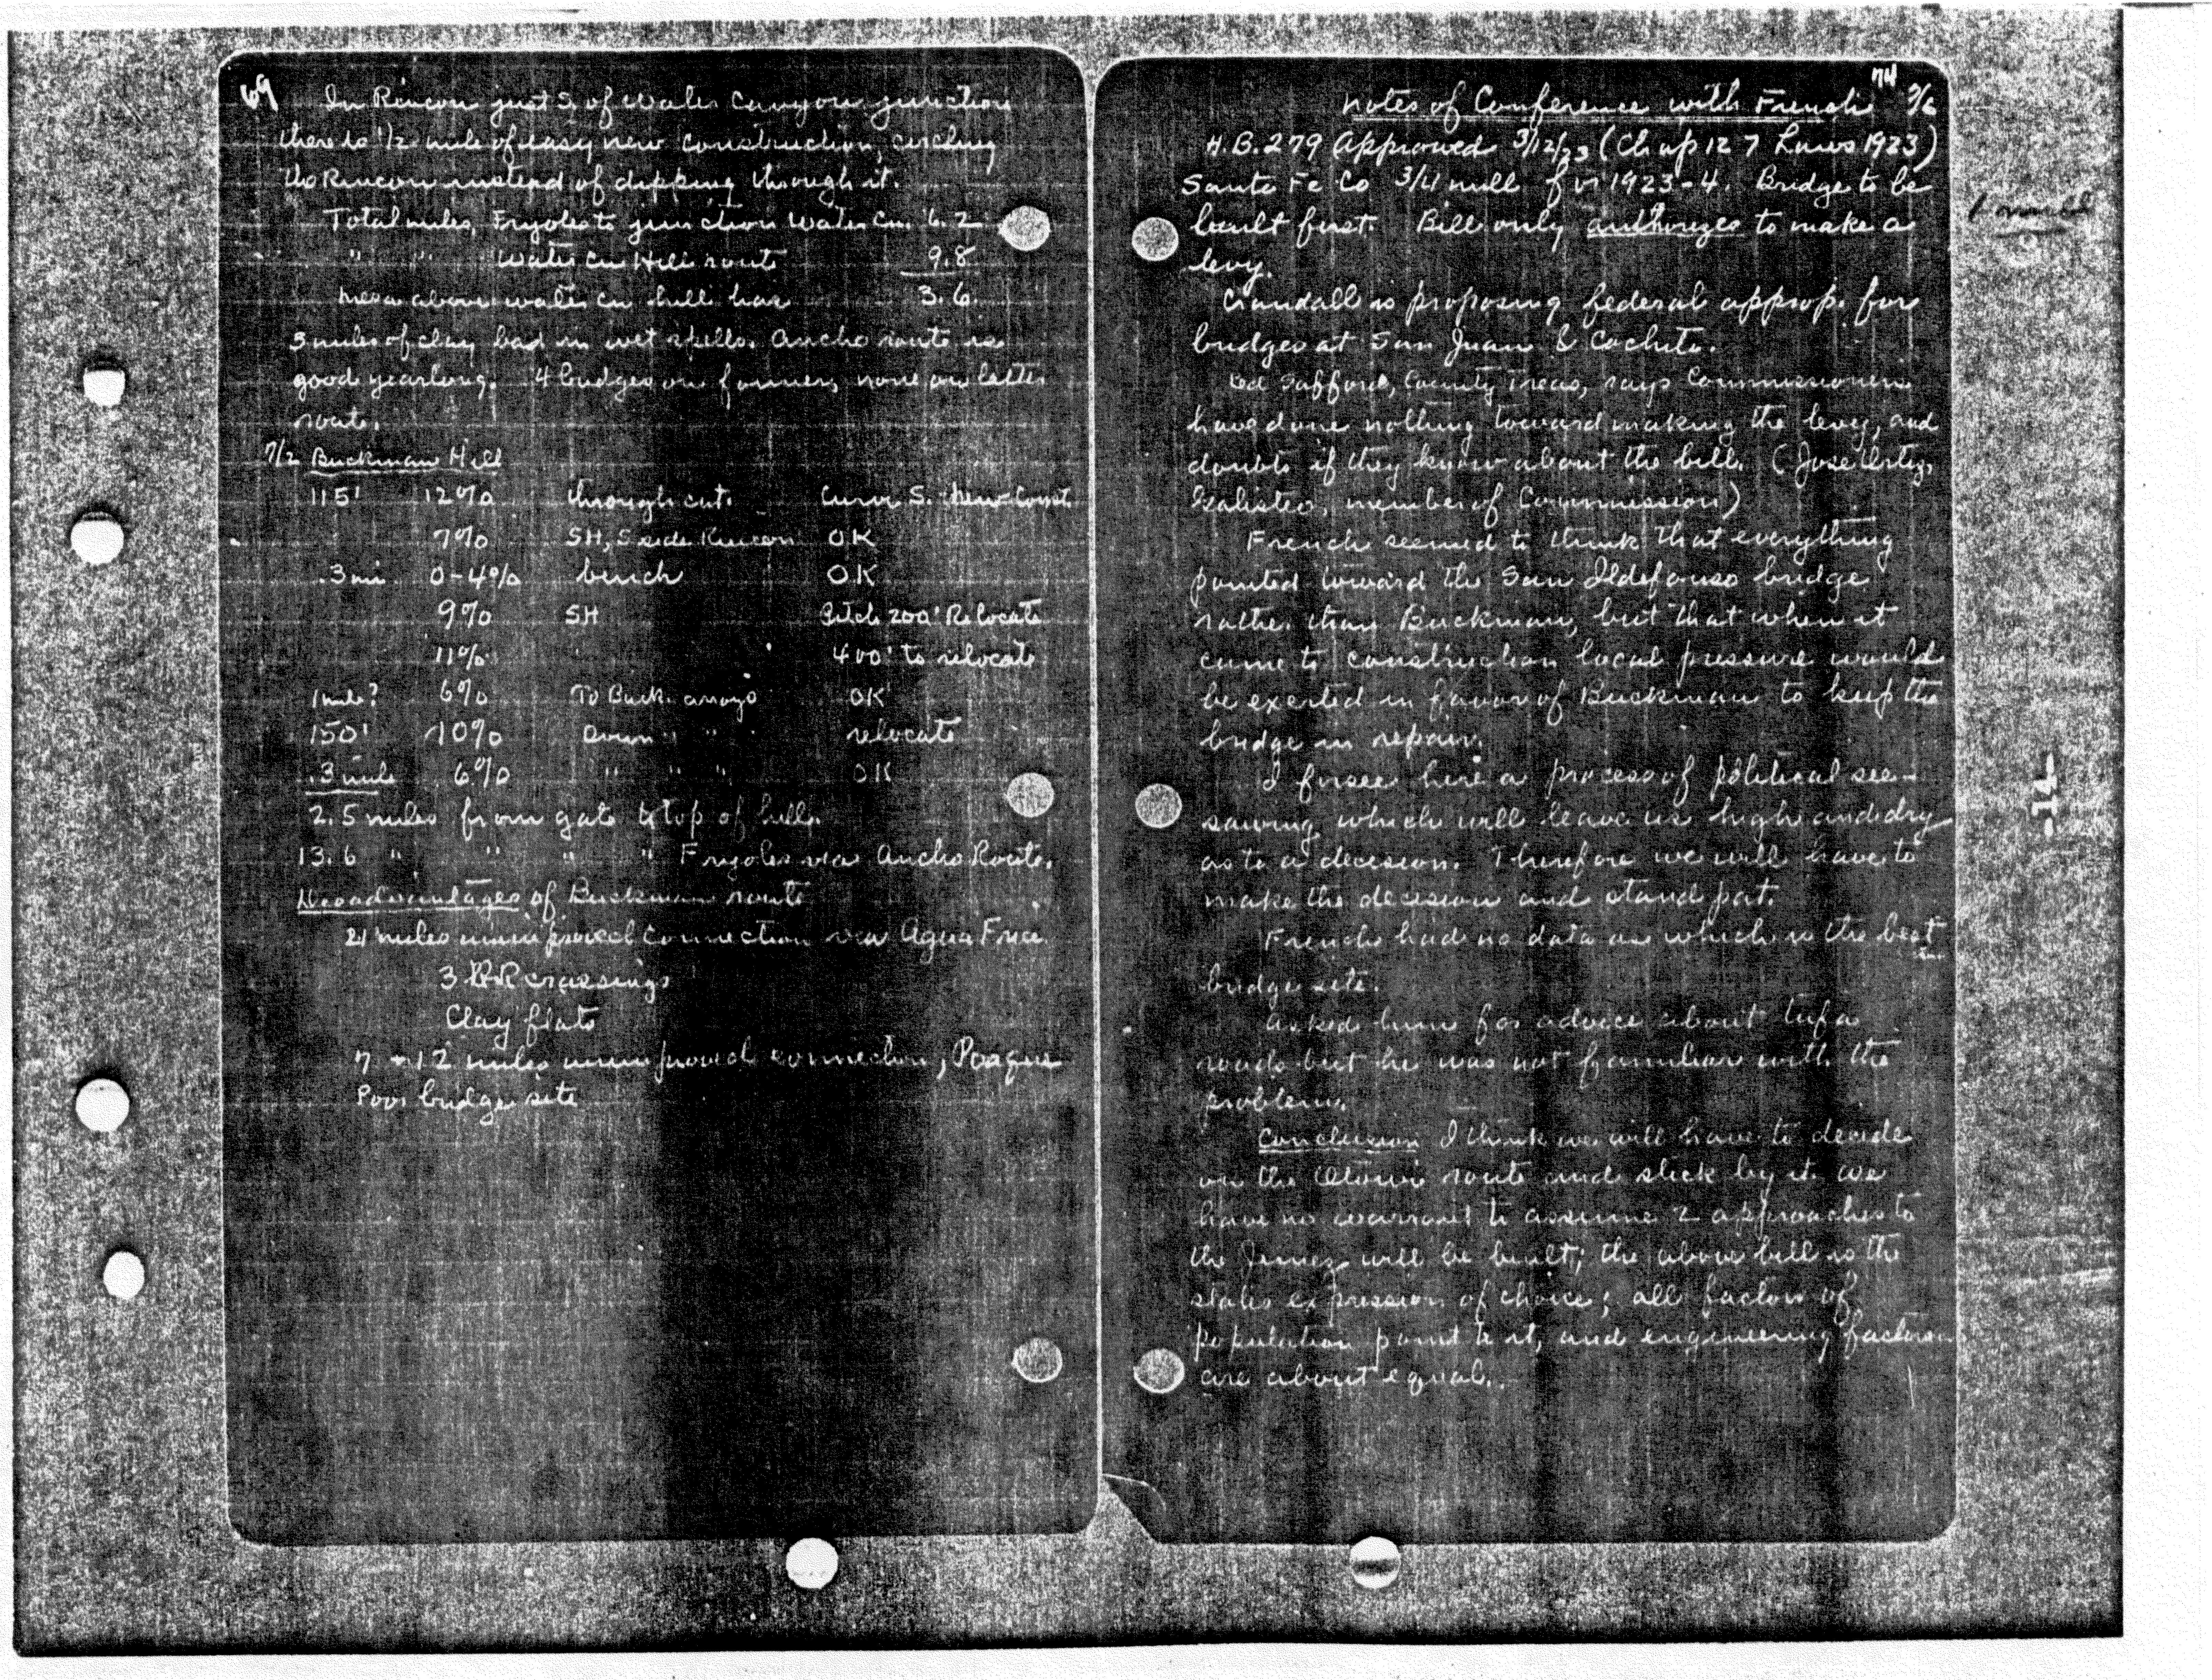 69
In Rincon just S of Water Canyon junction
there is 1/2 mile of easy new construction, circling
the Rincon instead of dipping through it.
Total miles, Frijoles to junction Water Cn. 6.2
" " Water Cn Hill route 9.8
Mesa above water cn hill has 3.6
3 miles of clay bad in wet spells. Ancho route is
good yearlong. 4 bridges on former, none on latter
route.
7/2 Buckman Hill
115' 12% through cut. Curve S. New Const.
7% SH, S side Rincon OK
.3 mi 0-4% bench OK
9% SH Pitch 200' Relocate
11% 400' to relocate
1 mile? 6% To Buck. arroyo OK
150' 10% Down " " relocate
.3 mile 6% " " " OK
2.5 miles from gate to top of hill.
13.6 " " " " Frijoles via Ancho Route.
Disadvantages of Buckman route
21 miles unimproved connection via Agua Fria
3 RR crossings
Clay flats
7 - 12 miles unimproved connection,
Poor bridge site
74
Notes of Conference with French 7/6
H.B. 279 Approved 3/12/23 (Chap 127 Laws 1923)
Santa Fe Co 3/4 mill for 1923-4. Bridge to be
built first. Bill only authorizes to make a
levy.
1 mill
Crandall is proposing federal approp. for
bridges at San Juan & Cochiti.
Safford, County Treas, says Commissioners
have done nothing toward making the levy, and
doubts if they know about the bill. (Jose Ortiz,
Galisteo, member of Commission)
French seemed to think that everything
pointed toward the San Ildefonso bridge
rather than Buckman, but that when it
came to construction local pressure would
be exerted in favor of Buckman to keep the
bridge in repair.
I forsee here a process of political see-
sawing which will leave us high and dry
as to a decision. Therefore we will have to
make the decision and stand pat.
French had no data on which is the best
bridge site.
Asked him for advice about tufa
roads but he was not familiar with the
problem.
Conclusion I think we will have to decide
on the Otowi route and stick by it. We
have no warrant to assume 2 approaches to
the Jemez will be built; the above bill is the
states expression of choice; all factors of
population point to it, and engineering factors
are about equal.
-14-